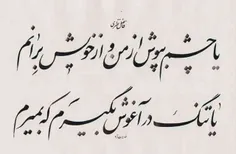 یا چشم بپوش از من و از خویش برانم
یا تنگ در آغوش بگیرم که بمیرم